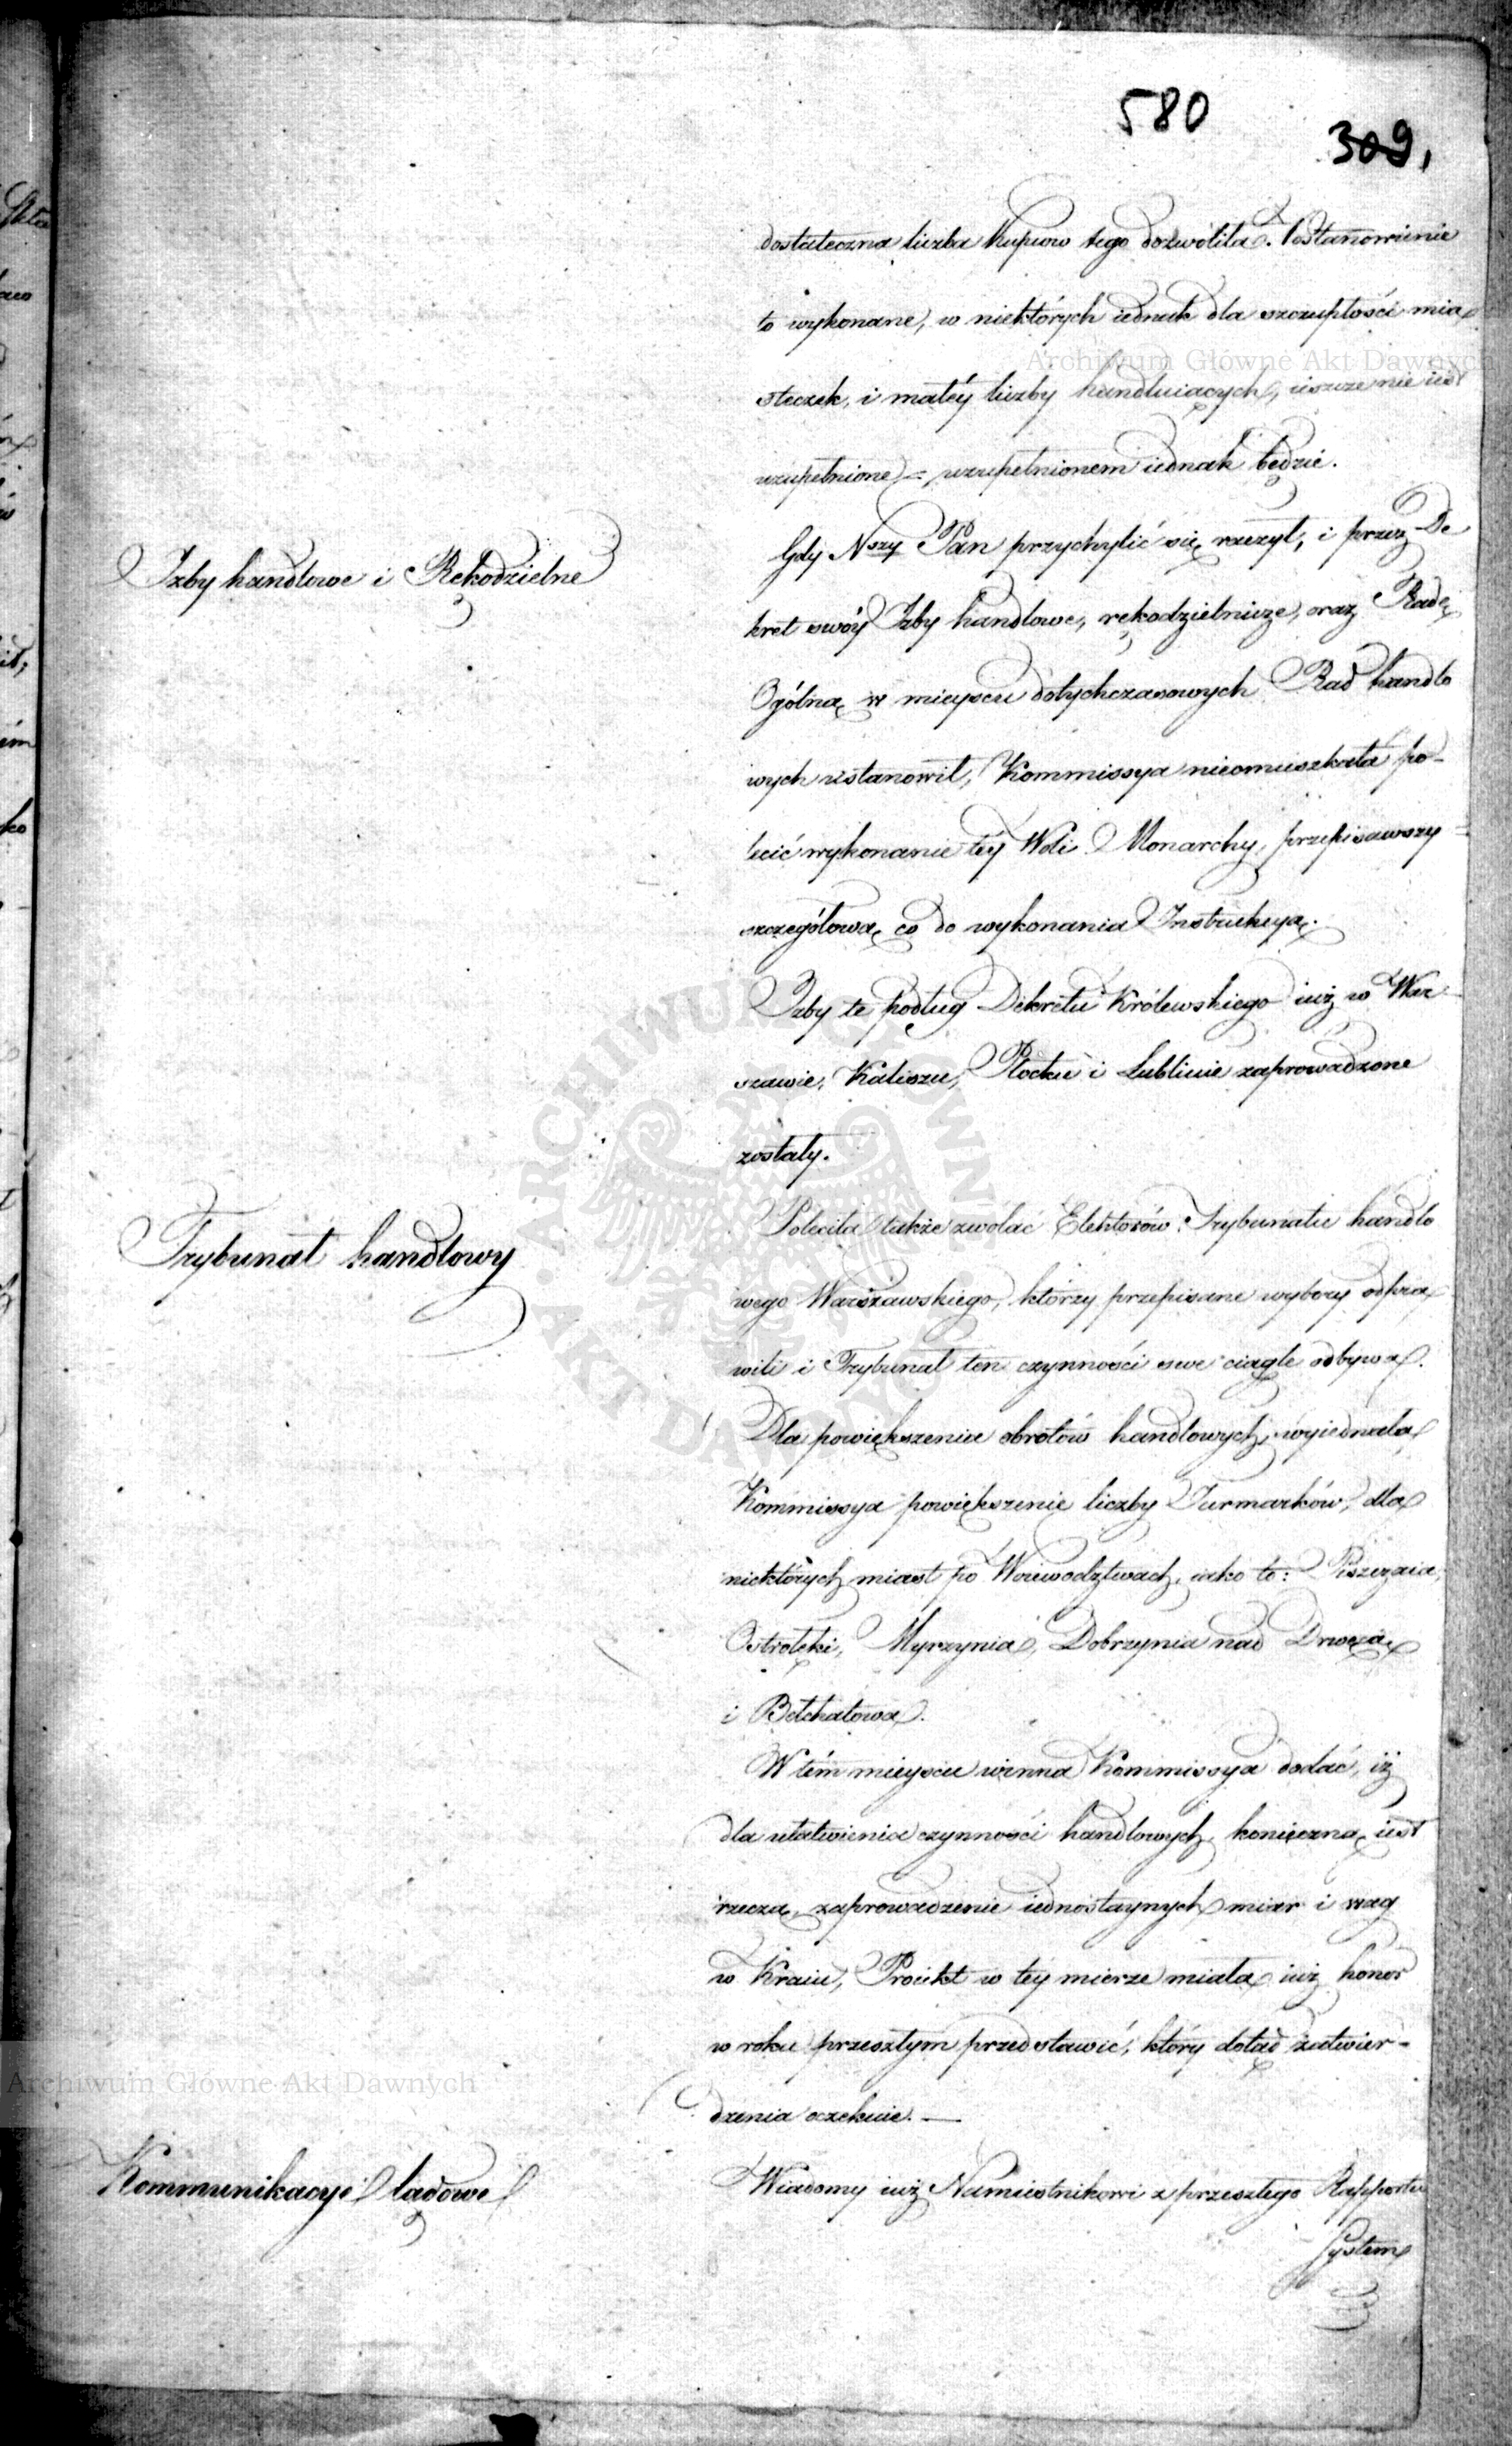 580
309,
dostateczna liczba Kupców tego dozwoliła. Postanowienie
to wykonane, w niektórych iednak dla szczupłości mia
steczek, i małéy liczby handluiących, ieszcze nie iest
uzupełnione = uzupełnionem iednak będzie.
Izby handlowe i Rękodzielne
Gdy Nszy Pan przychylić się raczył, i przez De
kret swóy Izby handlowe, rękodzielnicze, oraz Radę
Ogólną w mieyscu dotychczasowych Rad handlo
wych ustanowił, Kommissya nieomieszkała po-
lecić wykonanie téy Woli Monarchy, przepisawszy
szczegółową co do wykonania Instrukcyą.
Izby te podług Dekretu Królewskiego iuż w War
szawie, Kaliszu, Płocku i Lublinie zaprowadzone
zostały.
Trybunał handlowy
Poleciła także zwołać Elektorów Trybunału handlo
wego Warszawskiego, którzy przepisane wybory odpra
wili i Trybunał ten czynności swe ciągle odbywa.
Dla powiększenia obrotów handlowych, wyiednała
Kommissya powiększenie liczby Jarmarków, dla
niektórych miast po Woiewodztwach, iako to:
Ostrołęki, Dobrzynia nad Drwęcą
i Bełchatowa.
W tém mieyscu winna Kommissya dodać, iż
dla ułatwienia czynności handlowych, konieczną iest
rzeczą, zaprowadzenie iednostaynych miar i wag
w Kraiu, Proiekt w tey mierze miała iuż honor
w roku przeszłym przedstawić, który dotąd zatwier-
dzenia oczekuie. —
Kommunikacye lądowe
Wiadomy iuż Namiestnikowi z przeszłego Rapportu
System
Archiwum Główne Akt Dawnych
Archiwum Główne Akt Dawnych
ARCHIWUM GŁÓWNE AKT DAWNYCH